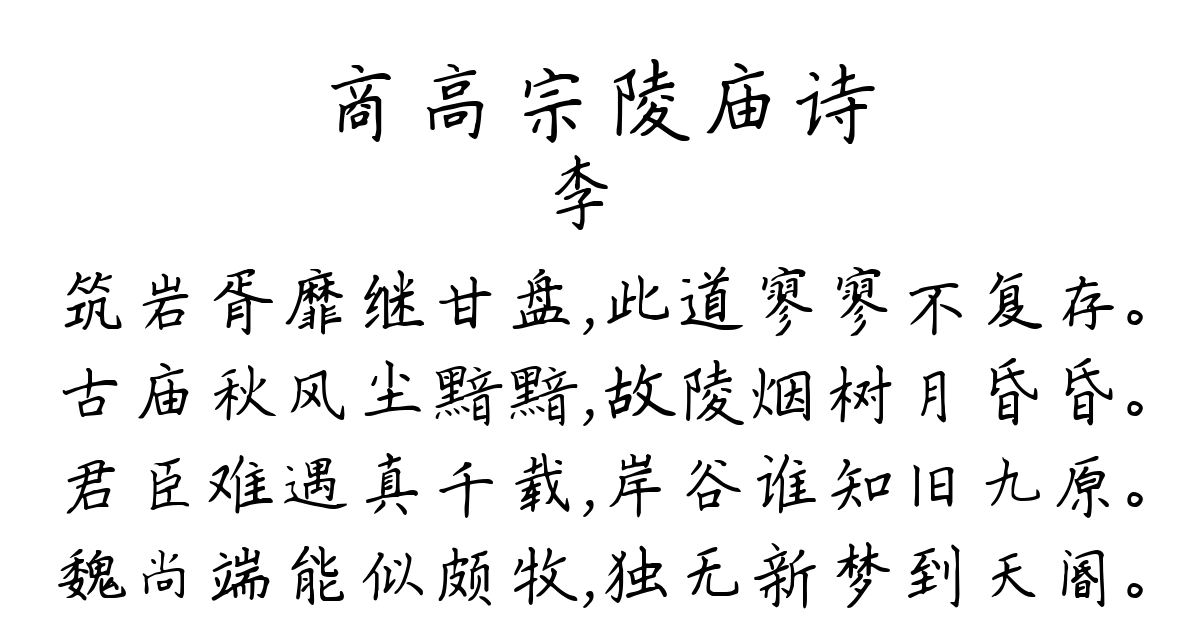 商高宗陵庙诗
李
筑岩胥靡继甘盘,此道寥寥不复存。
古庙秋风尘黯黯,故陵烟树月昏昏。
君臣难遇真千载,岸谷谁知旧九原。
魏尚端能似颇牧,独无新梦到天阍。